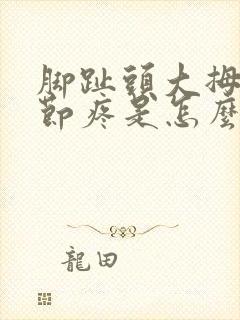 脚趾頭大拇
節疼是怎麼
龍田